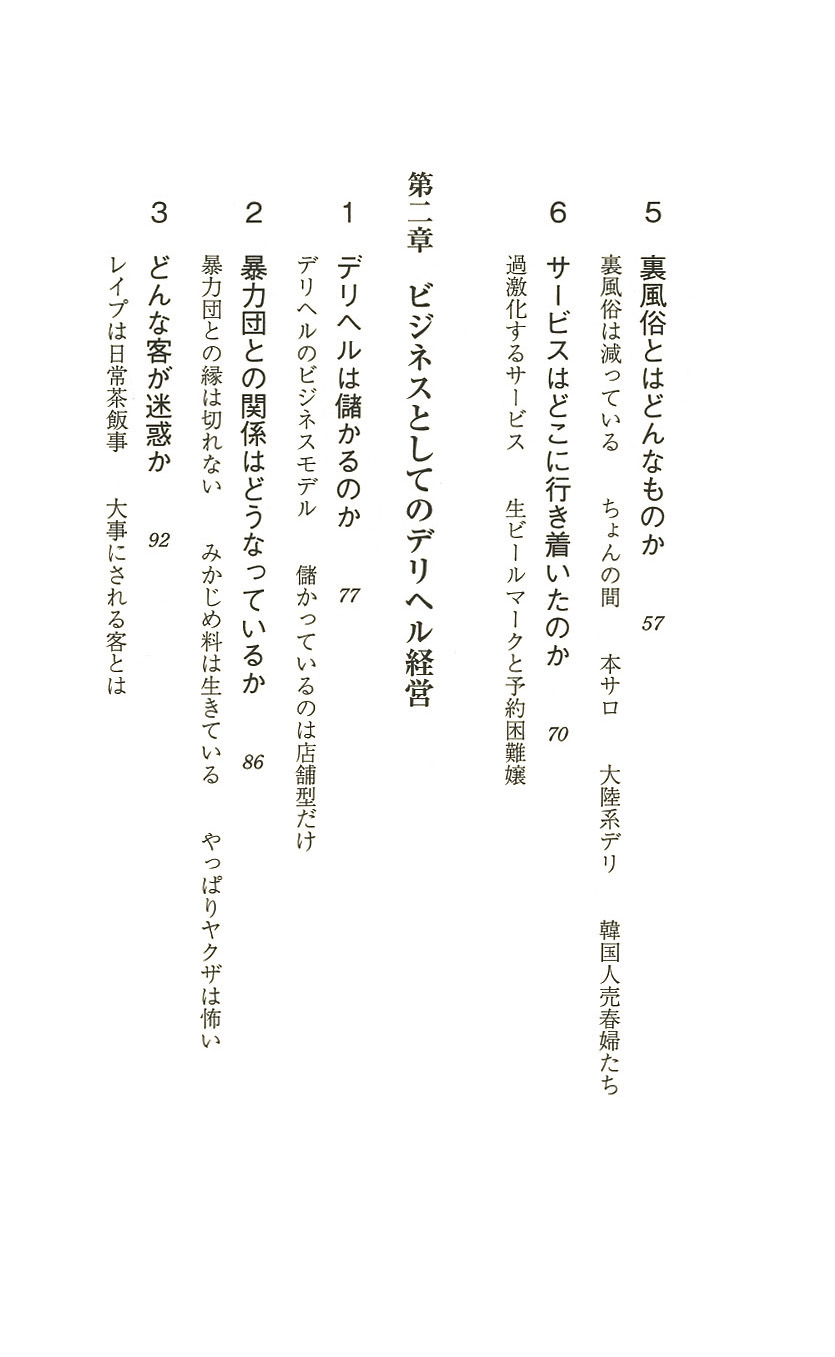 5 裏風俗とはどんなものか 57
裏風俗は減っている ちょんの間 本サロ 大陸系デリ 韓国人売春婦たち
6 サービスはどこに行き着いたのか 70
過激化するサービス 生ビールマークと予約困難嬢
第二章 ビジネスとしてのデリヘル経営
1 デリヘルは儲かるのか 77
デリヘルのビジネスモデル 儲かっているのは店舗型だけ
2 暴力団との関係はどうなっているか 86
暴力団との縁は切れない みかじめ料は生きている やっぱりヤクザは怖い
3 どんな客が迷惑か 92
レイプは日常茶飯事 大事にされる客とは